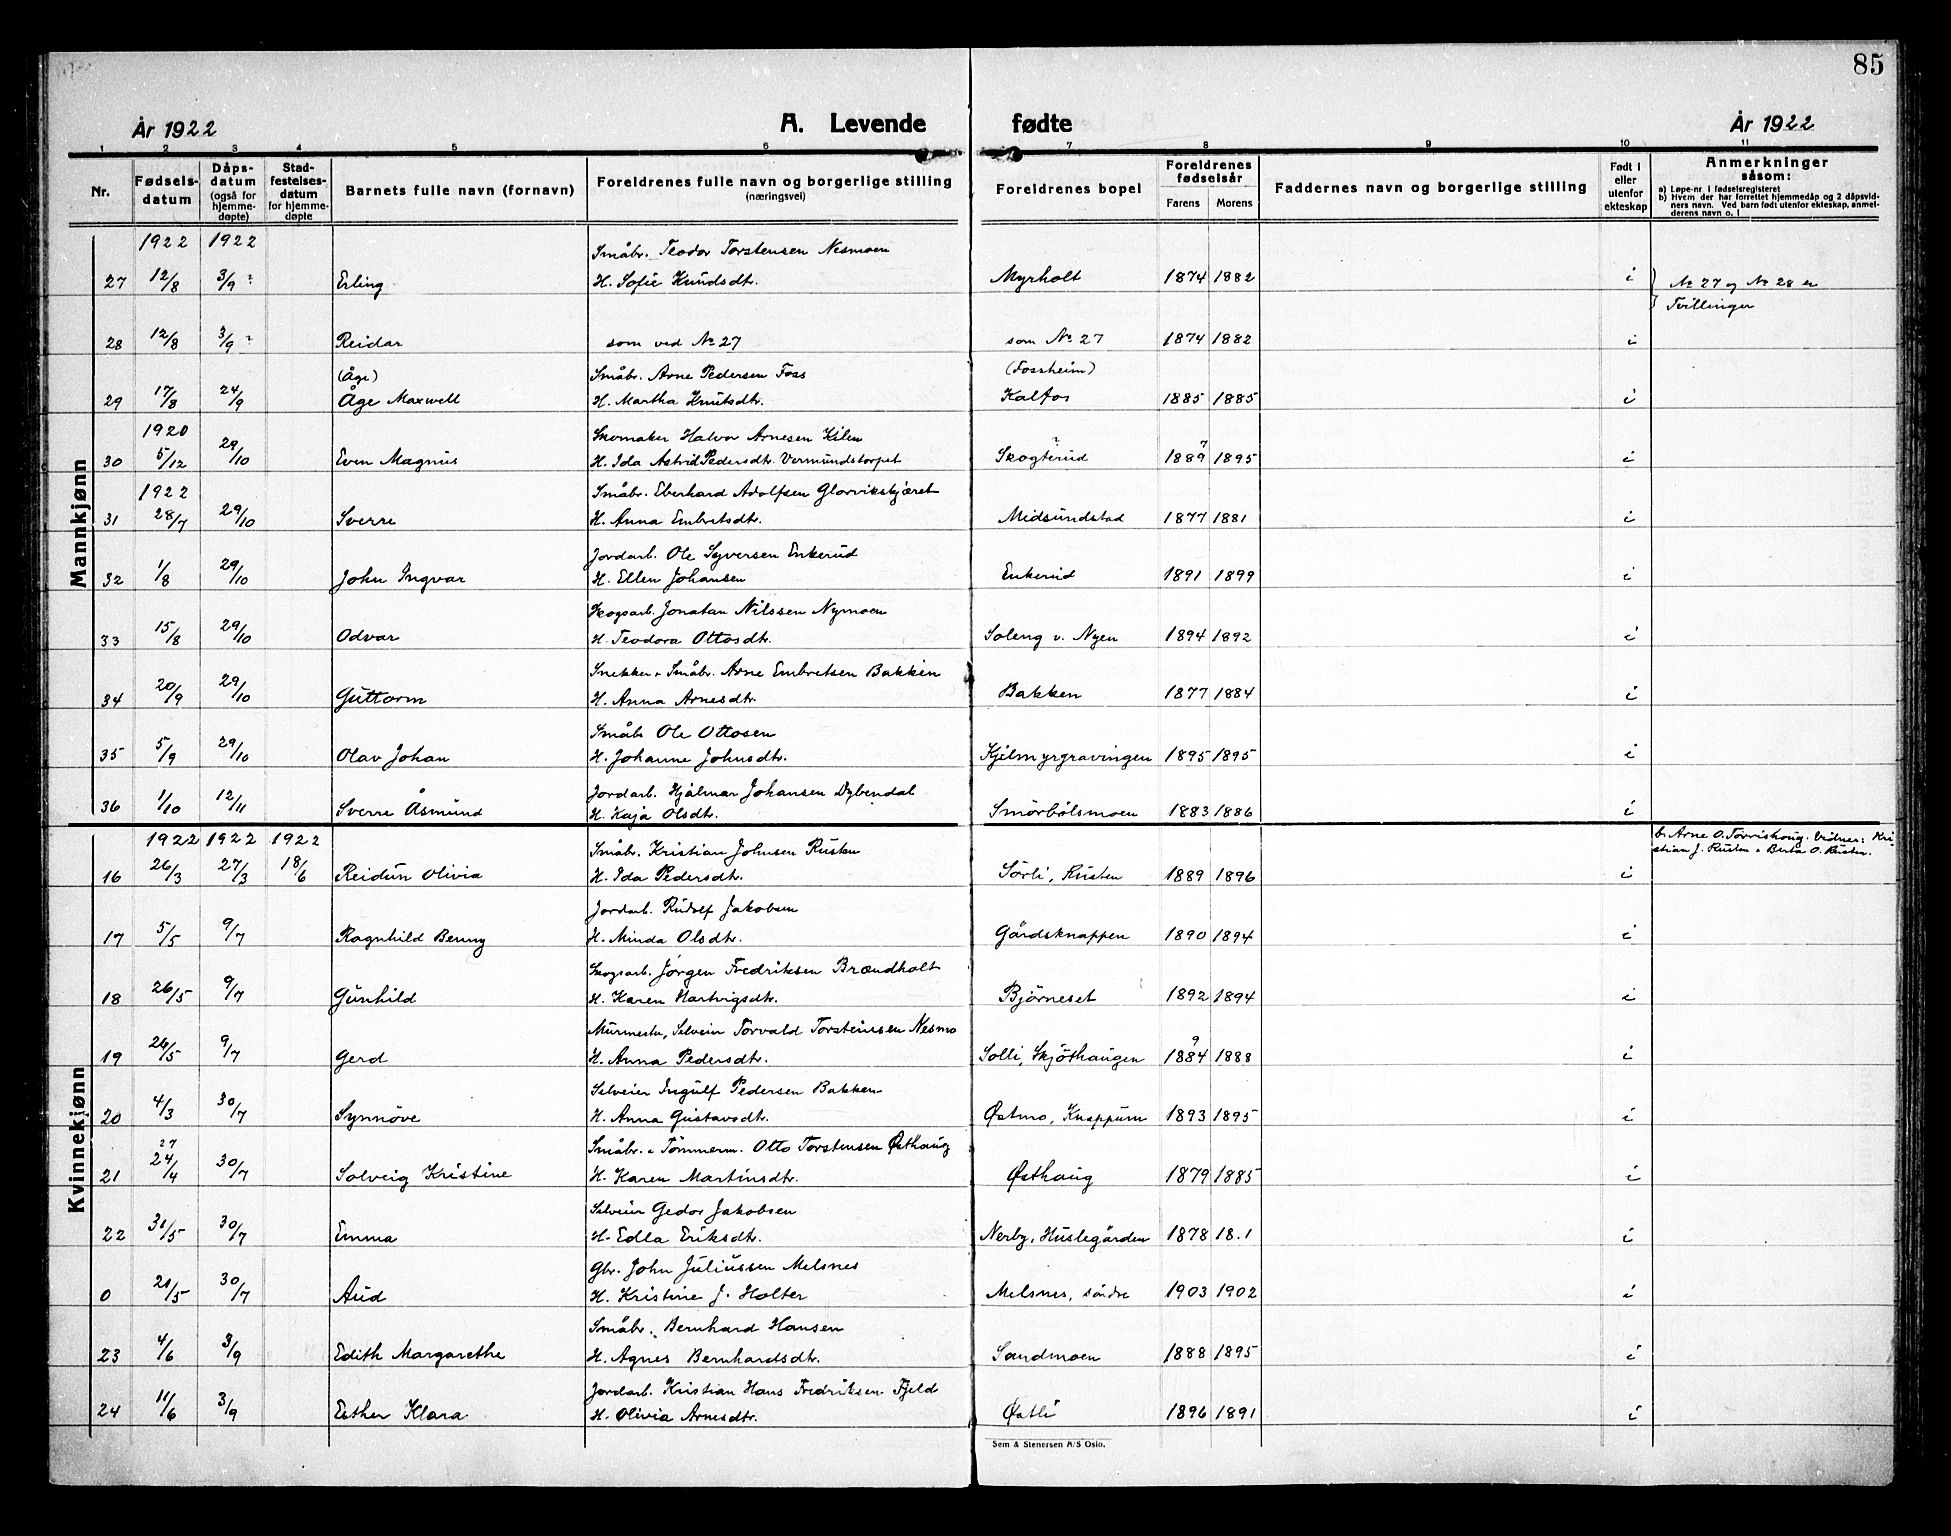 85
År 1922 A. Levende fødte År 1922
1 2 3 4 5 6 7 8 9 10 11
Nr. Fødsels-datum Dåps-datum (også for hjemme-døpte) Stad-festelses-datum for hjemme-døpte Barnets fulle navn (fornavn) Foreldrenes fulle navn og borgerlige stilling (næringsvei) Foreldrenes bopel Foreldrenes fødselsår Farens Morens Faddernes navn og borgerlige stilling Født i eller utenfor ekteskap Anmerkninger såsom:
a) Løpe-nr. i fødselsregisteret
b) Hvem der har forrettet hjemmedåp og 2 dåpsvidners navn. Ved barn født utenfor ekteskap, anmelderens navn o. l
Mannkjønn
1922 1922 Småbr. Teodor Torstensen Nesmoen
27 12/8 3/9 ? Erling H. Sofie Knudsdtr. Myrholt 1874 1882 i No 27 og No 28 er
Tvillinger
28 12/8 3/9 ? Reidar som ved No 27 som No 27 1874 1882 i
(Åge) Småbr. Arne Pedersen Foss (Fossheim)
29 17/8 24/9 Åge Maxwell H. Martha Knutsdtr. Kalfos 1885 1885 i
1920 Skomaker Halvor Arnesen Kilen ? 7
30 5/12 29/10 Even Magnus H. Ida Astrid Pedersdtr. Vermundstorpet Skogterud 1889 1895 i
1922 Småbr. Eberhard Adolfsen Glorvikskjæret
31 28/7 29/10 Sverre H. Anna Embretsdtr. Midsundstad 1877 1881 i
Jordarb. Ole Syversen Enkerud
32 1/8 29/10 John Ingvar H. Ellen Johansen Enkerud 1891 1899 i
Skogsarb. Jonatan Nilssen Nymoen
33 15/8 29/10 Odvar H. Teodora Ottosdtr. Soleng v. Nyen 1894 1892 i
Snekker + Småbr. Arne Embretsen Bakken
34 20/9 29/10 Guttorm H. Anna Arnesdtr. Bakken 1877 1884 i
Småb. Ole Ottosen
35 5/9 29/10 Olav Johan H. Johanne Johnsdtr. Kjelmyrgravingen 1895 1895 i
Jordarb. Hjalmar Johansen Dybendal
36 1/10 12/11 Sverre Åsmund H. Kaja Olsdtr. Smörbölsmoen 1883 1886 i
Kvinnekjønn
1922 1922 1922 Småbr. Kristian Johnsen Rusten b. Arne O. Torrishaug. Vidner: Kri-
16 26/3 27/3 18/6 Reidun Olivia H. Ida Pedersdtr. Sörli, Rusten 1889 1896 i stian J. Rusten + Berta O. Rusten.
Jordarb. Rudolf Jakobsen
17 5/5 9/7 Ragnhild Benny H. Minda Olsdtr. Gårdsknappen 1890 1894 i
Skogsarb. Jörgen Fredriksen Brændholt
18 26/5 9/7 Gunhild H. Karen Hartvigsdtr. Björneset 1892 1894 i
Murmestr, Selveier Torvald Torsteinsen Nesmo 9
19 26/5 9/7 Gerd H. Anna Pedersdtr. Solli, Skjöthaugen 1884 1888 i
Selveier Ingulf Pedersen Bakken
20 4/3 30/7 Synnöve H. Anna Gustavsdtr. Østmo, Knappum 1893 1895 i
27 Småbr. + Tömmerm. Otto Torstensen Østhaug
21 24/4 30/7 Solveig Kristine H. Karen Martinsdtr. Østhaug 1879 1885 i
Selveier Gedor Jakobsen
22 31/5 30/7 Emma H. Edla Eriksdtr. Nerby, Huslegården 1878 18.1 i
Gbr. John Juliussen Melsnes
0 21/5 30/7 Aud H. Kristine J. Holter Melsnes, söndre 1903 1902 i
Småbr. Bernhard Hansen
23 4/6 3/9 Edith Margarethe H. Agnes Bernhardsdtr. Sandmoen 1888 1895 i
Jordarb. Kristian Hans Fredriksen Fjeld
24 11/6 3/9 Esther Klara H. Olivia Arnesdtr. Østli 1896 1891 i
Sem & Stenersen A/S Oslo.